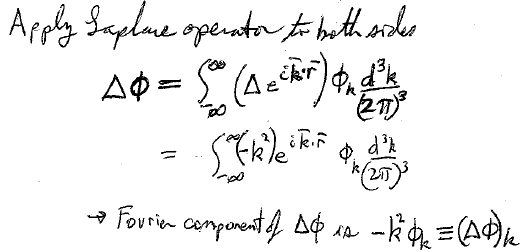 Apply Laplace operator to both sides
Δφ = ∫_{-∞}^{∞} (Δ e^{i k̄·r̄}) φ_k d³k/(2π)³
= ∫_{-∞}^{∞} (-k²) e^{i k̄·r̄} φ_k d³k/(2π)³
→ Fourier component of Δφ is -k² φ_k ≡ (Δφ)_k